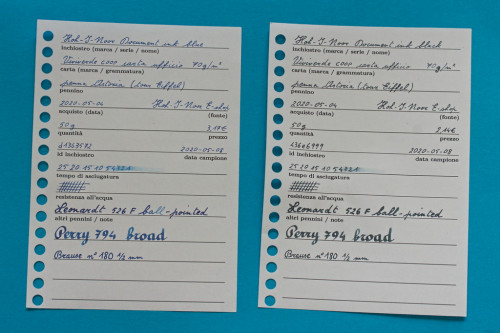 Koh-I-Noor Document ink blue
inchiostro (marca / serie / nome)
Vivaverde coop carta ufficio 70g/m²
carta (marca / grammatura)
penna Astoria (tour Eiffel)
pennino
2020-05-04 Koh-I-Noor E-shop
acquisto (data) (fonte)
50g
quantità prezzo
61347592 2020-05-08
id inchiostro data campione
25 20 15 10 54321
tempo di asciugatura
resistenza all'acqua
Leonardt 526 F ball-pointed
altri pennini / note
Perry 794 broad
Brause n° 180 ½ mm
Koh-I-Noor Document ink black
inchiostro (marca / serie / nome)
Vivaverde coop carta ufficio 70g/m²
carta (marca / grammatura)
penna Astoria (tour Eiffel)
pennino
2020-05-04 Koh-I-Noor E-shop
acquisto (data) (fonte)
50g 2,14€
quantità prezzo
2020-05-08
id inchiostro data campione
25 20 15 10 54321
tempo di asciugatura
resistenza all'acqua
Leonardt 526 F ball-pointed
altri pennini / note
Perry 794 broad
Brause n° 180 ½ mm